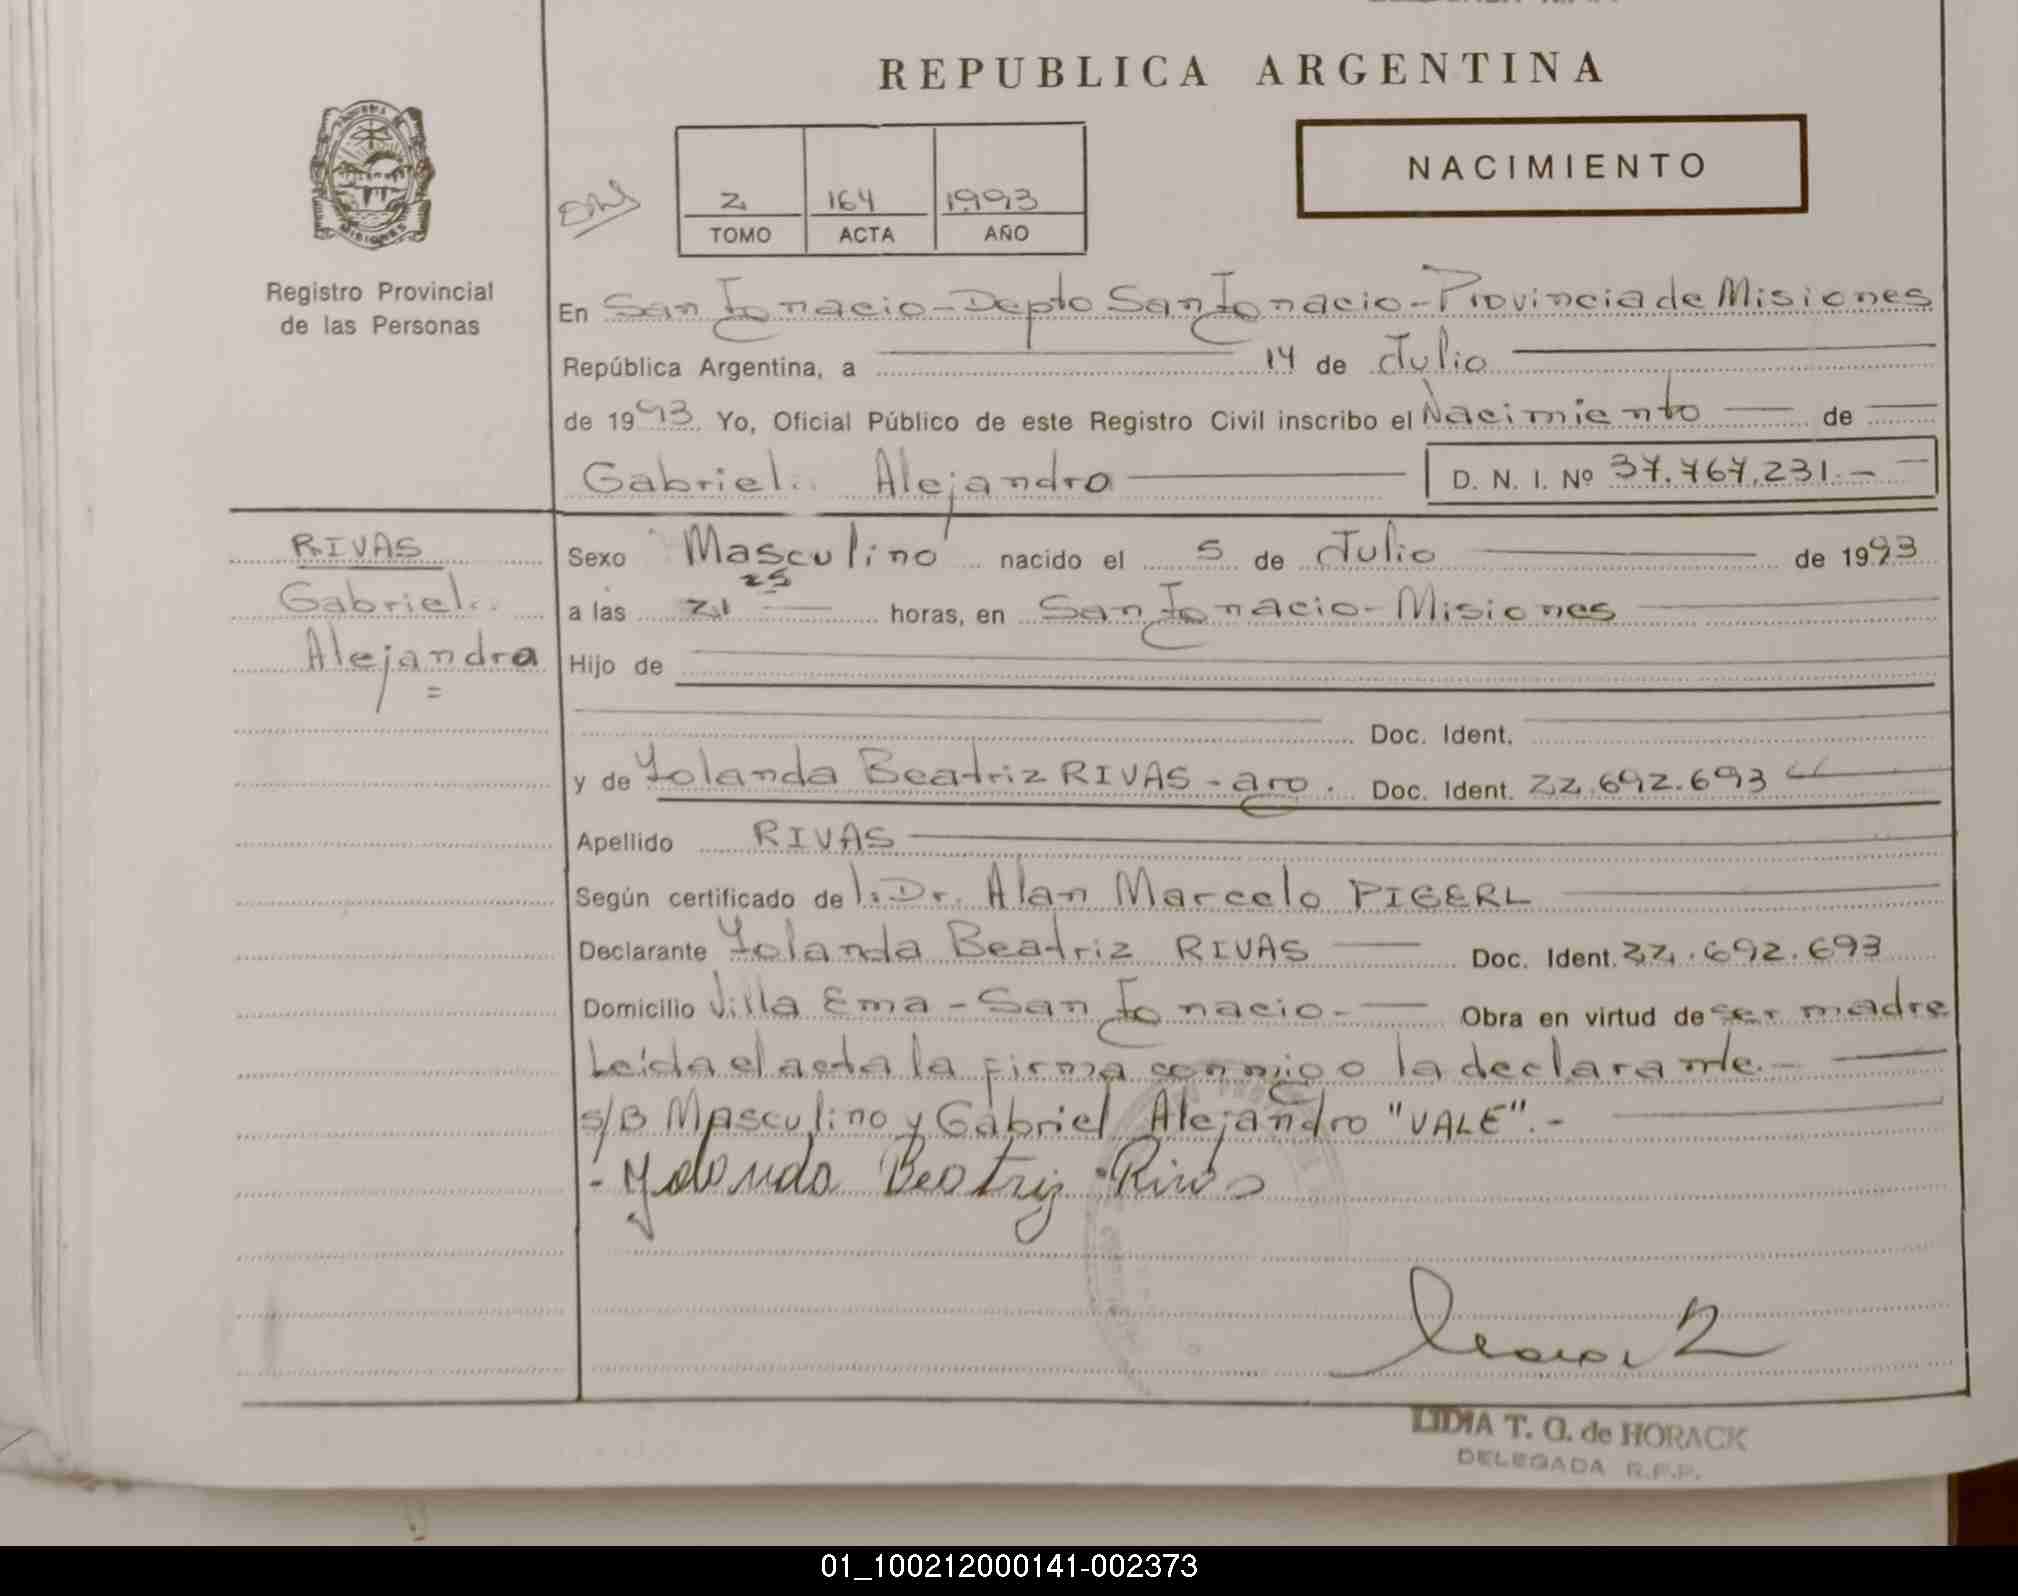 REPUBLICA ARGENTINA
NACIMIENTO
2 164 1993
TOMO ACTA AÑO
MISIONES
Registro Provincial
de las Personas
En San Ignacio - Depto San Ignacio - Provincia de Misiones
República Argentina, a 14 de Julio
de 1993. Yo, Oficial Público de este Registro Civil inscribo el Nacimiento de
Gabriel Alejandro D. N. I. Nº 37.767.231.-
RIVAS
Gabriel
Alejandro
Sexo Masculino nacido el 5 de Julio de 1993
a las 21 25 horas, en San Ignacio - Misiones
Hijo de
Doc. Ident.
y de Yolanda Beatriz RIVAS - arg. Doc. Ident. 22.692.693
Apellido RIVAS
Según certificado del: Dr. Alan Marcelo PIGERL
Declarante Yolanda Beatriz RIVAS Doc. Ident. 22.692.693
Domicilio Villa Ema - San Ignacio - Obra en virtud de ser madre
Leída el acta la firma conmigo la declarante. -
s/B Masculino y Gabriel Alejandro "VALE". -
- Yolanda Beatriz Rivas
LIDIA T. O. de HORACK
DELEGADA R.P.P.
01_100212000141-002373